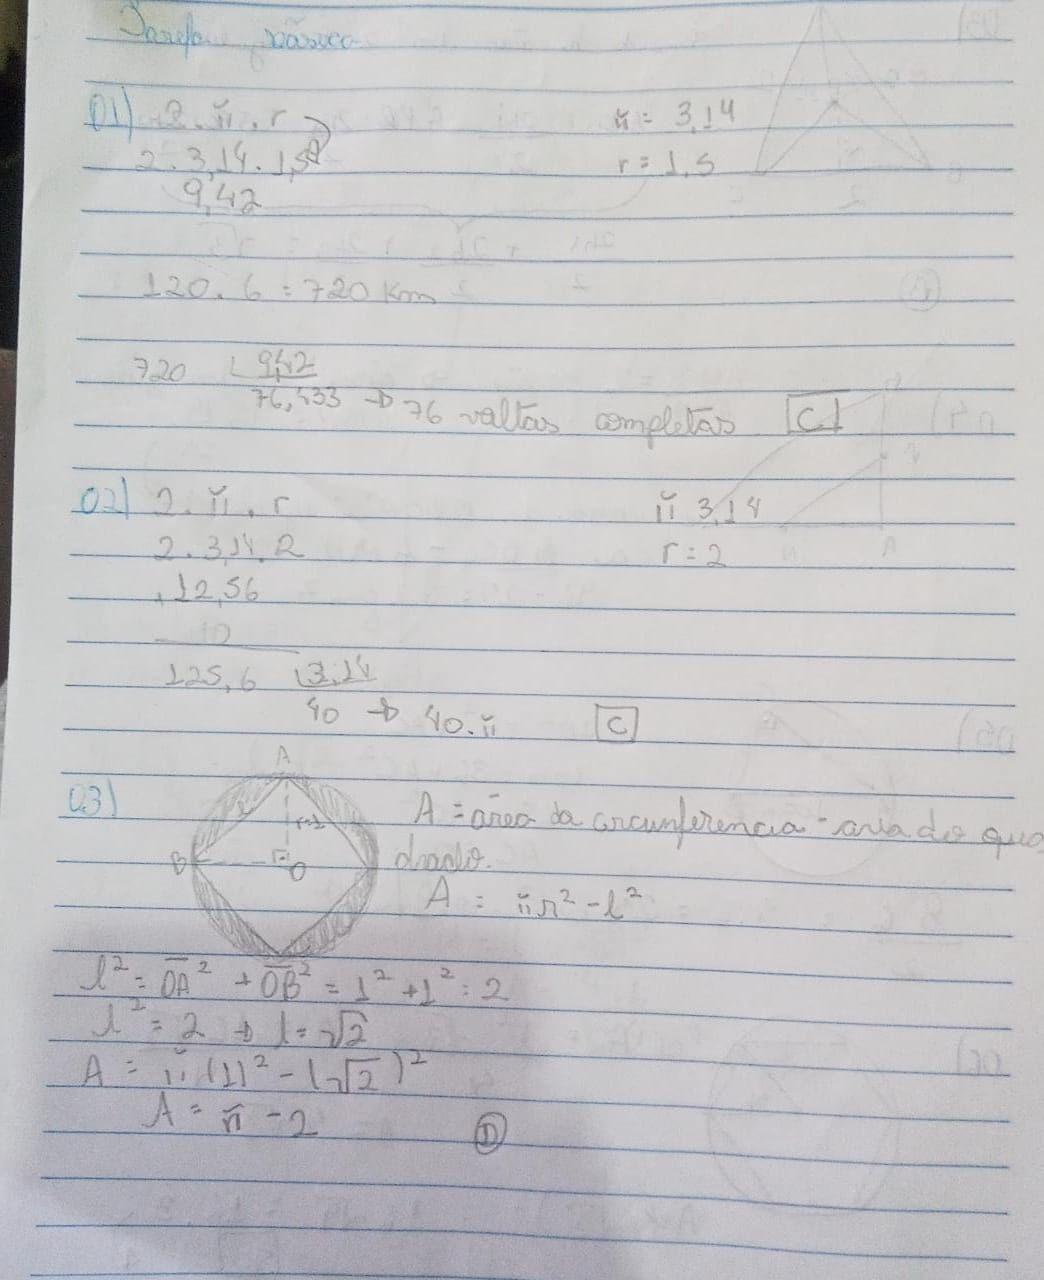 Tarefa básica
01) 2 . π . r
π = 3,14
2 . 3,14 . 1,5
r = 1,5
9,42
120 . 6 = 720 Km
720 9,42
76,433 → 76 voltas completas C
02) 2 . π . r
π 3,14
2 . 3,14 . 2
r = 2
12,56
10
125,6 3,14
40 → 40 . π C
03)
A
r=1
B
O
A = área da circunferência - área do qua
drado.
A = πr² - l²
l² = OA² + OB² = 1² + 1² = 2
l² = 2 → l = √2
A = π (1)² - (√2)²
A = π - 2 D